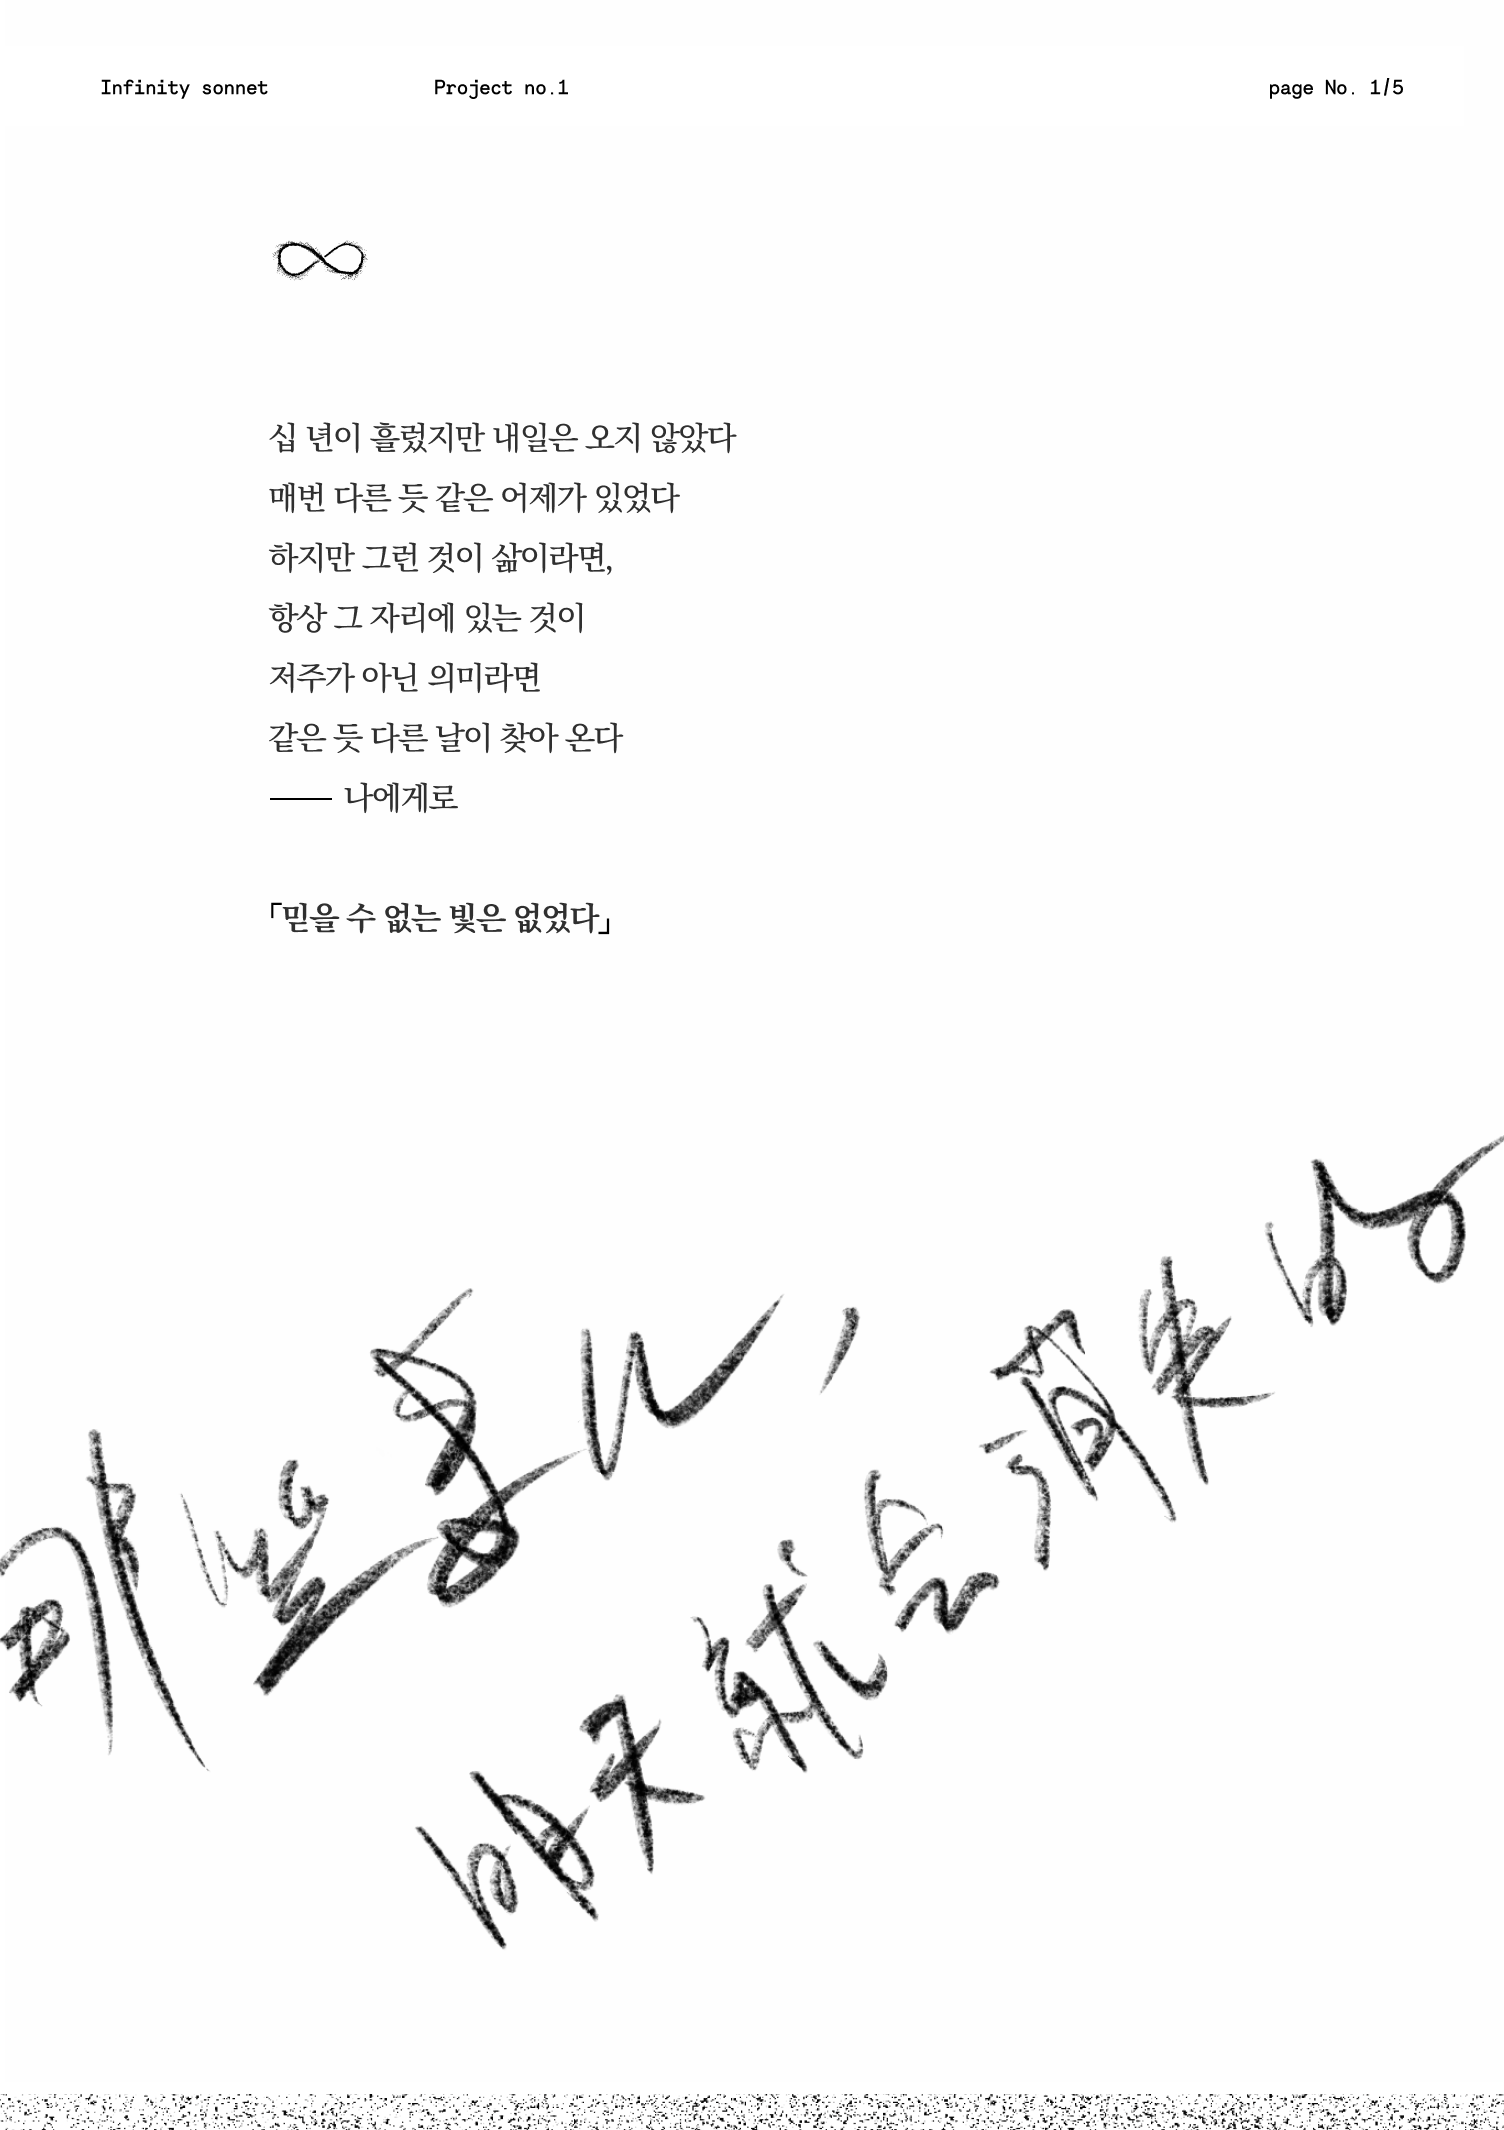 Infinity sonnet Project no.1 page No. 1/5
십 년이 흘렀지만 내일은 오지 않았다
매번 다른 듯 같은 어제가 있었다
하지만 그런 것이 삶이라면,
항상 그 자리에 있는 것이
저주가 아닌 의미라면
같은 듯 다른 날이 찾아 온다
—— 나에게로
「믿을 수 없는 빛은 없었다」
那些变化,
明天就会消失的